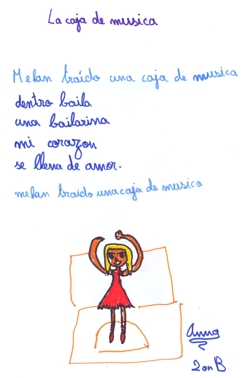 La caja de musica
Melan traído una caja de musica
dentro baila
una bailarina
mi corazon
se llena de amor.
melan traido unacaja de musica
Anna
2on B